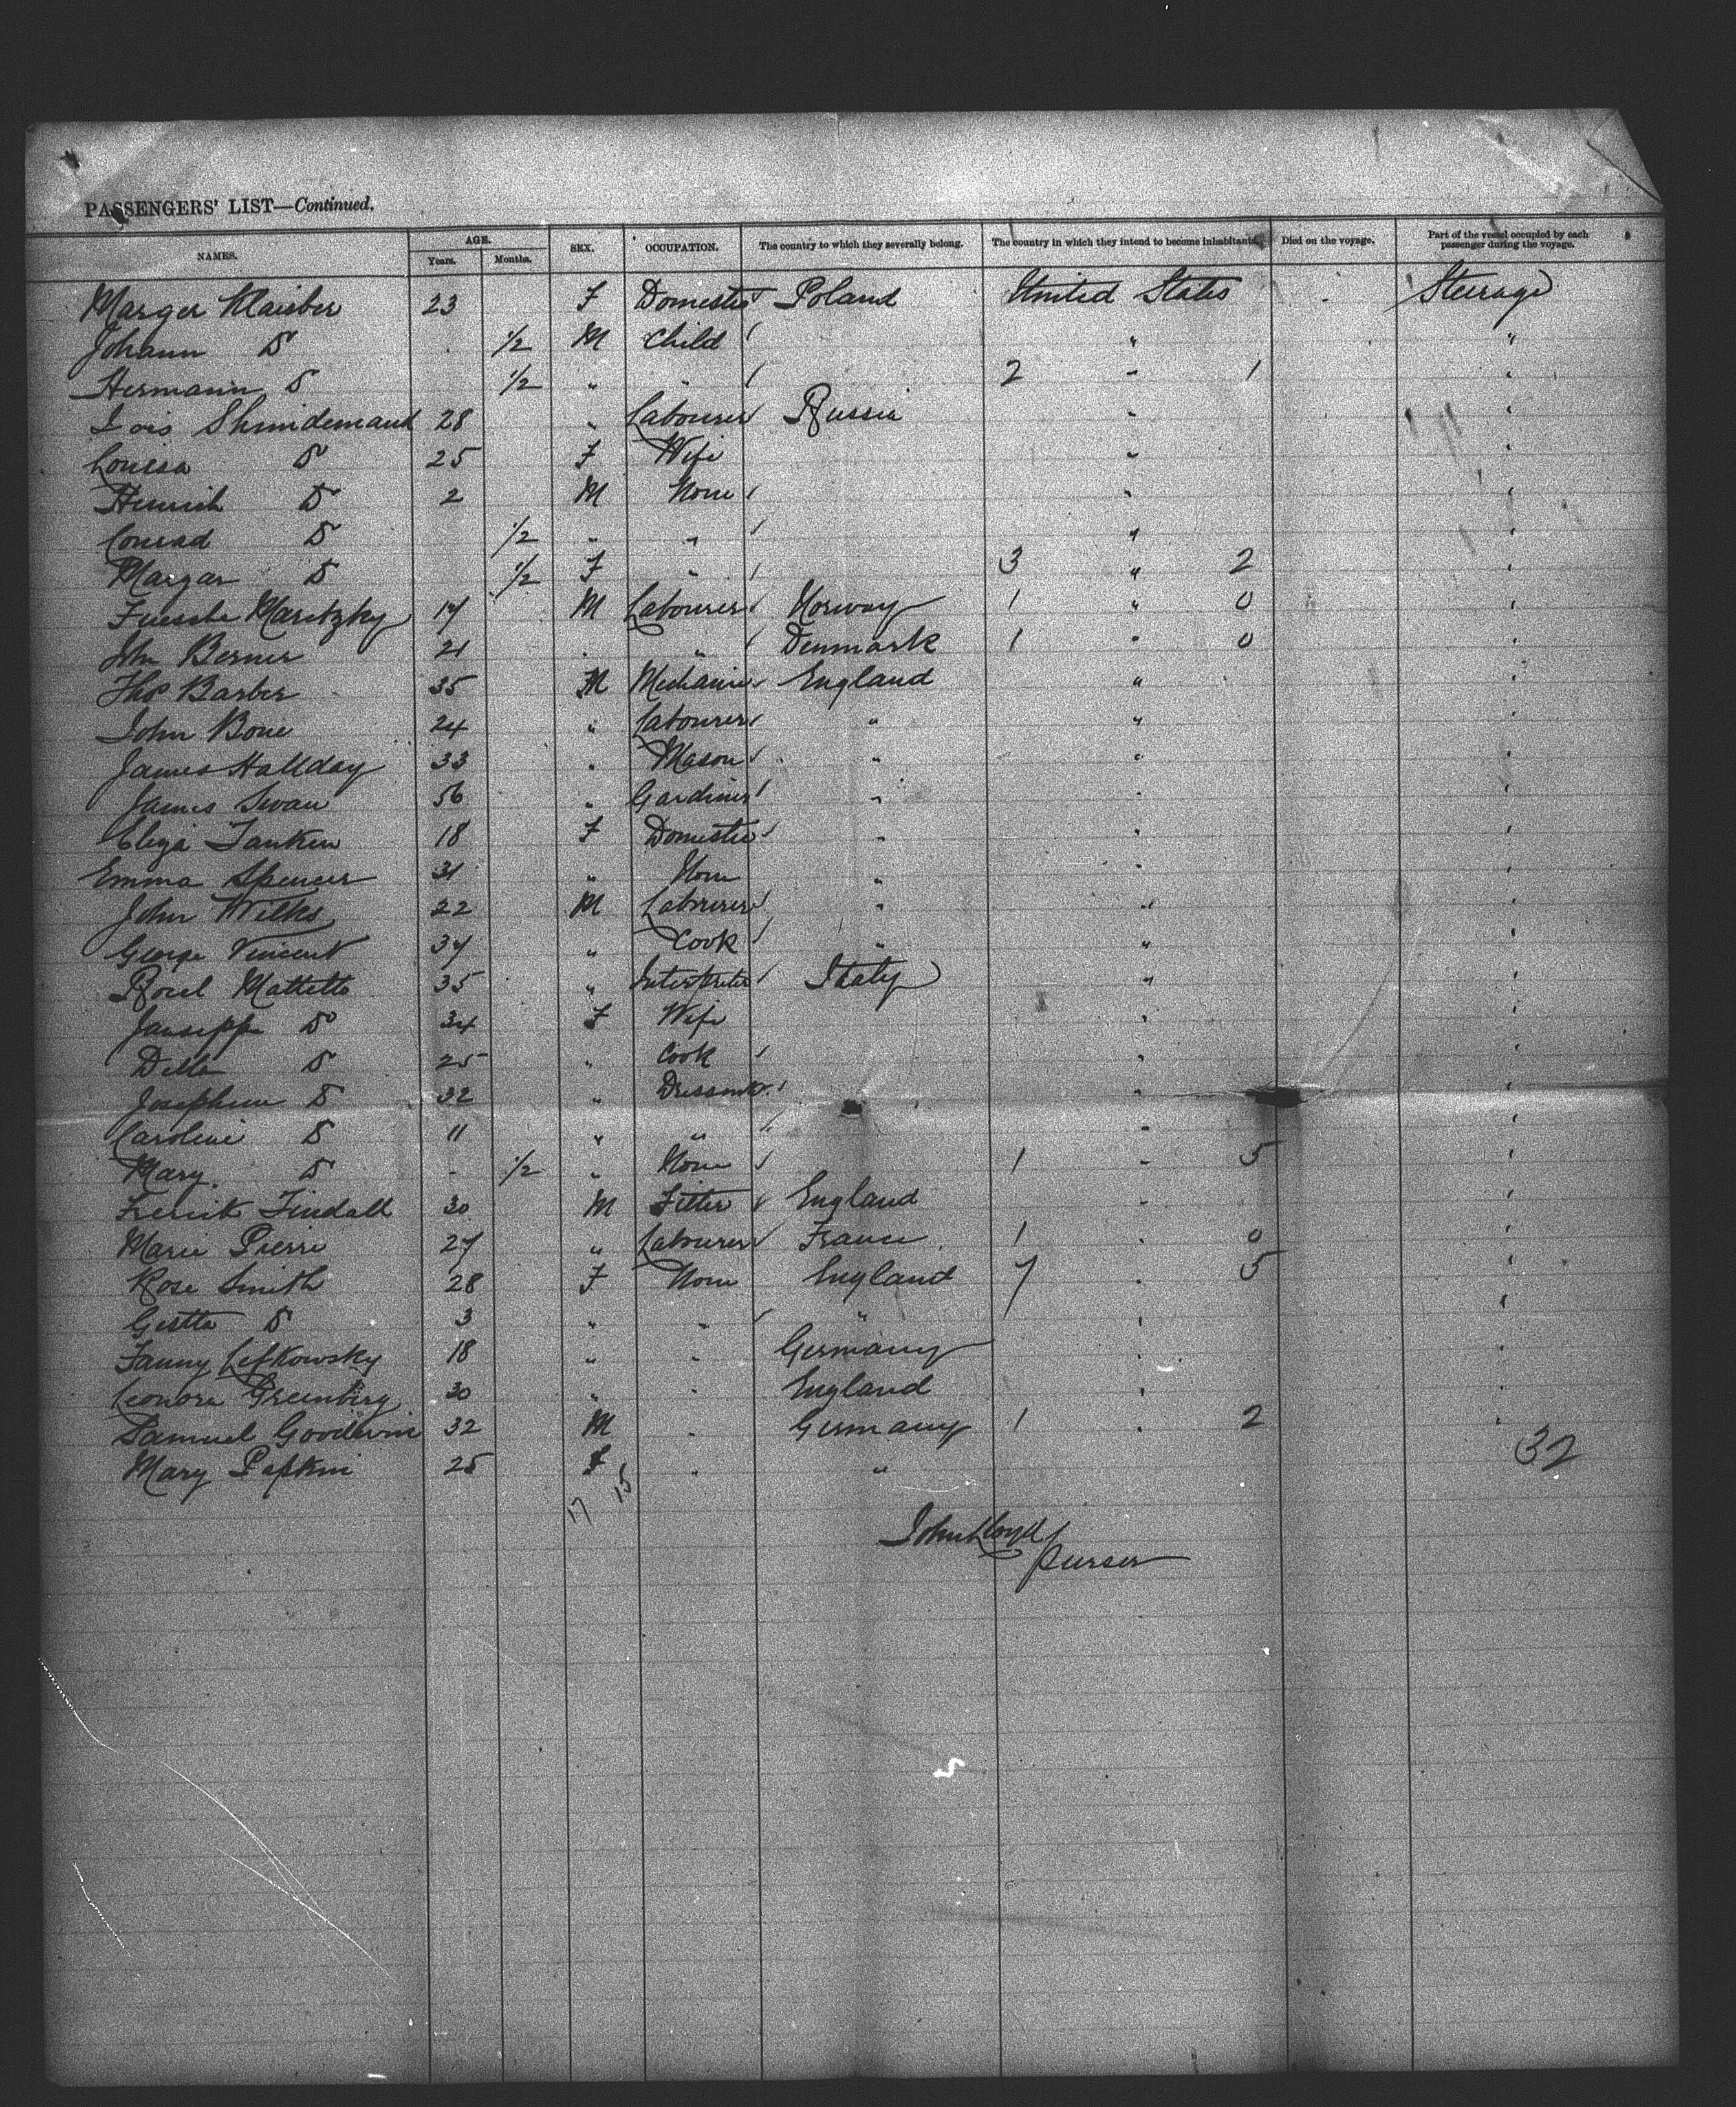 PASSENGERS' LIST—Continued.
NAMES. AGE. Years. Months. SEX. OCCUPATION. The country to which they severally belong. The country in which they intend to become inhabitants. Died on the voyage. Part of the vessel occupied by each passenger during the voyage.
Marger Klaiber 23 F Domestic Poland United States Steerage
Johann D 1/2 M Child " "
Hermann D 1/2 " " 2 " 1 "
Lois Shmidemand 28 " Labourer Russia " "
Louisa D 25 F Wife " "
Heinrich D 2 M None " "
Conrad D 1/2 " " " "
Margar D 1/2 F " 3 " 2 "
Maritzky 17 M Labourer Norway 1 " 0 "
John Berner 21 " " Denmark 1 " 0 "
Thos Barber 35 M Mechanic England " "
John Bone 24 " Labourer " " "
James Hallday 33 " Mason " " "
James Swan 56 " Gardiner " " "
Eliza Tanken 18 F Domestic " " "
Emma Spencer 31 " None " " "
John Wilks 22 M Labourer " " "
George Vincent 37 " Cook " " "
Mattetto 35 " Interpreter Italy " "
D 34 F Wife " "
Della D 25 " Cook " "
Josephine D 32 " Dressmkr. " "
Caroline D 11 " " " "
Mary D - 1/2 " None 1 " 5 "
Frerick Tindall 30 M Fitter England " "
Marie Pierre 27 " Labourer France 1 " 0 "
Rose Smith 28 F None England 7 " 5 "
Gertta D 3 " " " " "
Fanny Lefkowsky 18 " " Germany " "
Leonora Greenberg 30 " " England " "
Samuel Goodwin 32 M " Germany 1 " 2 "
Mary Pepkin 25 F " " 32
17 15
John Lloyd
Purser